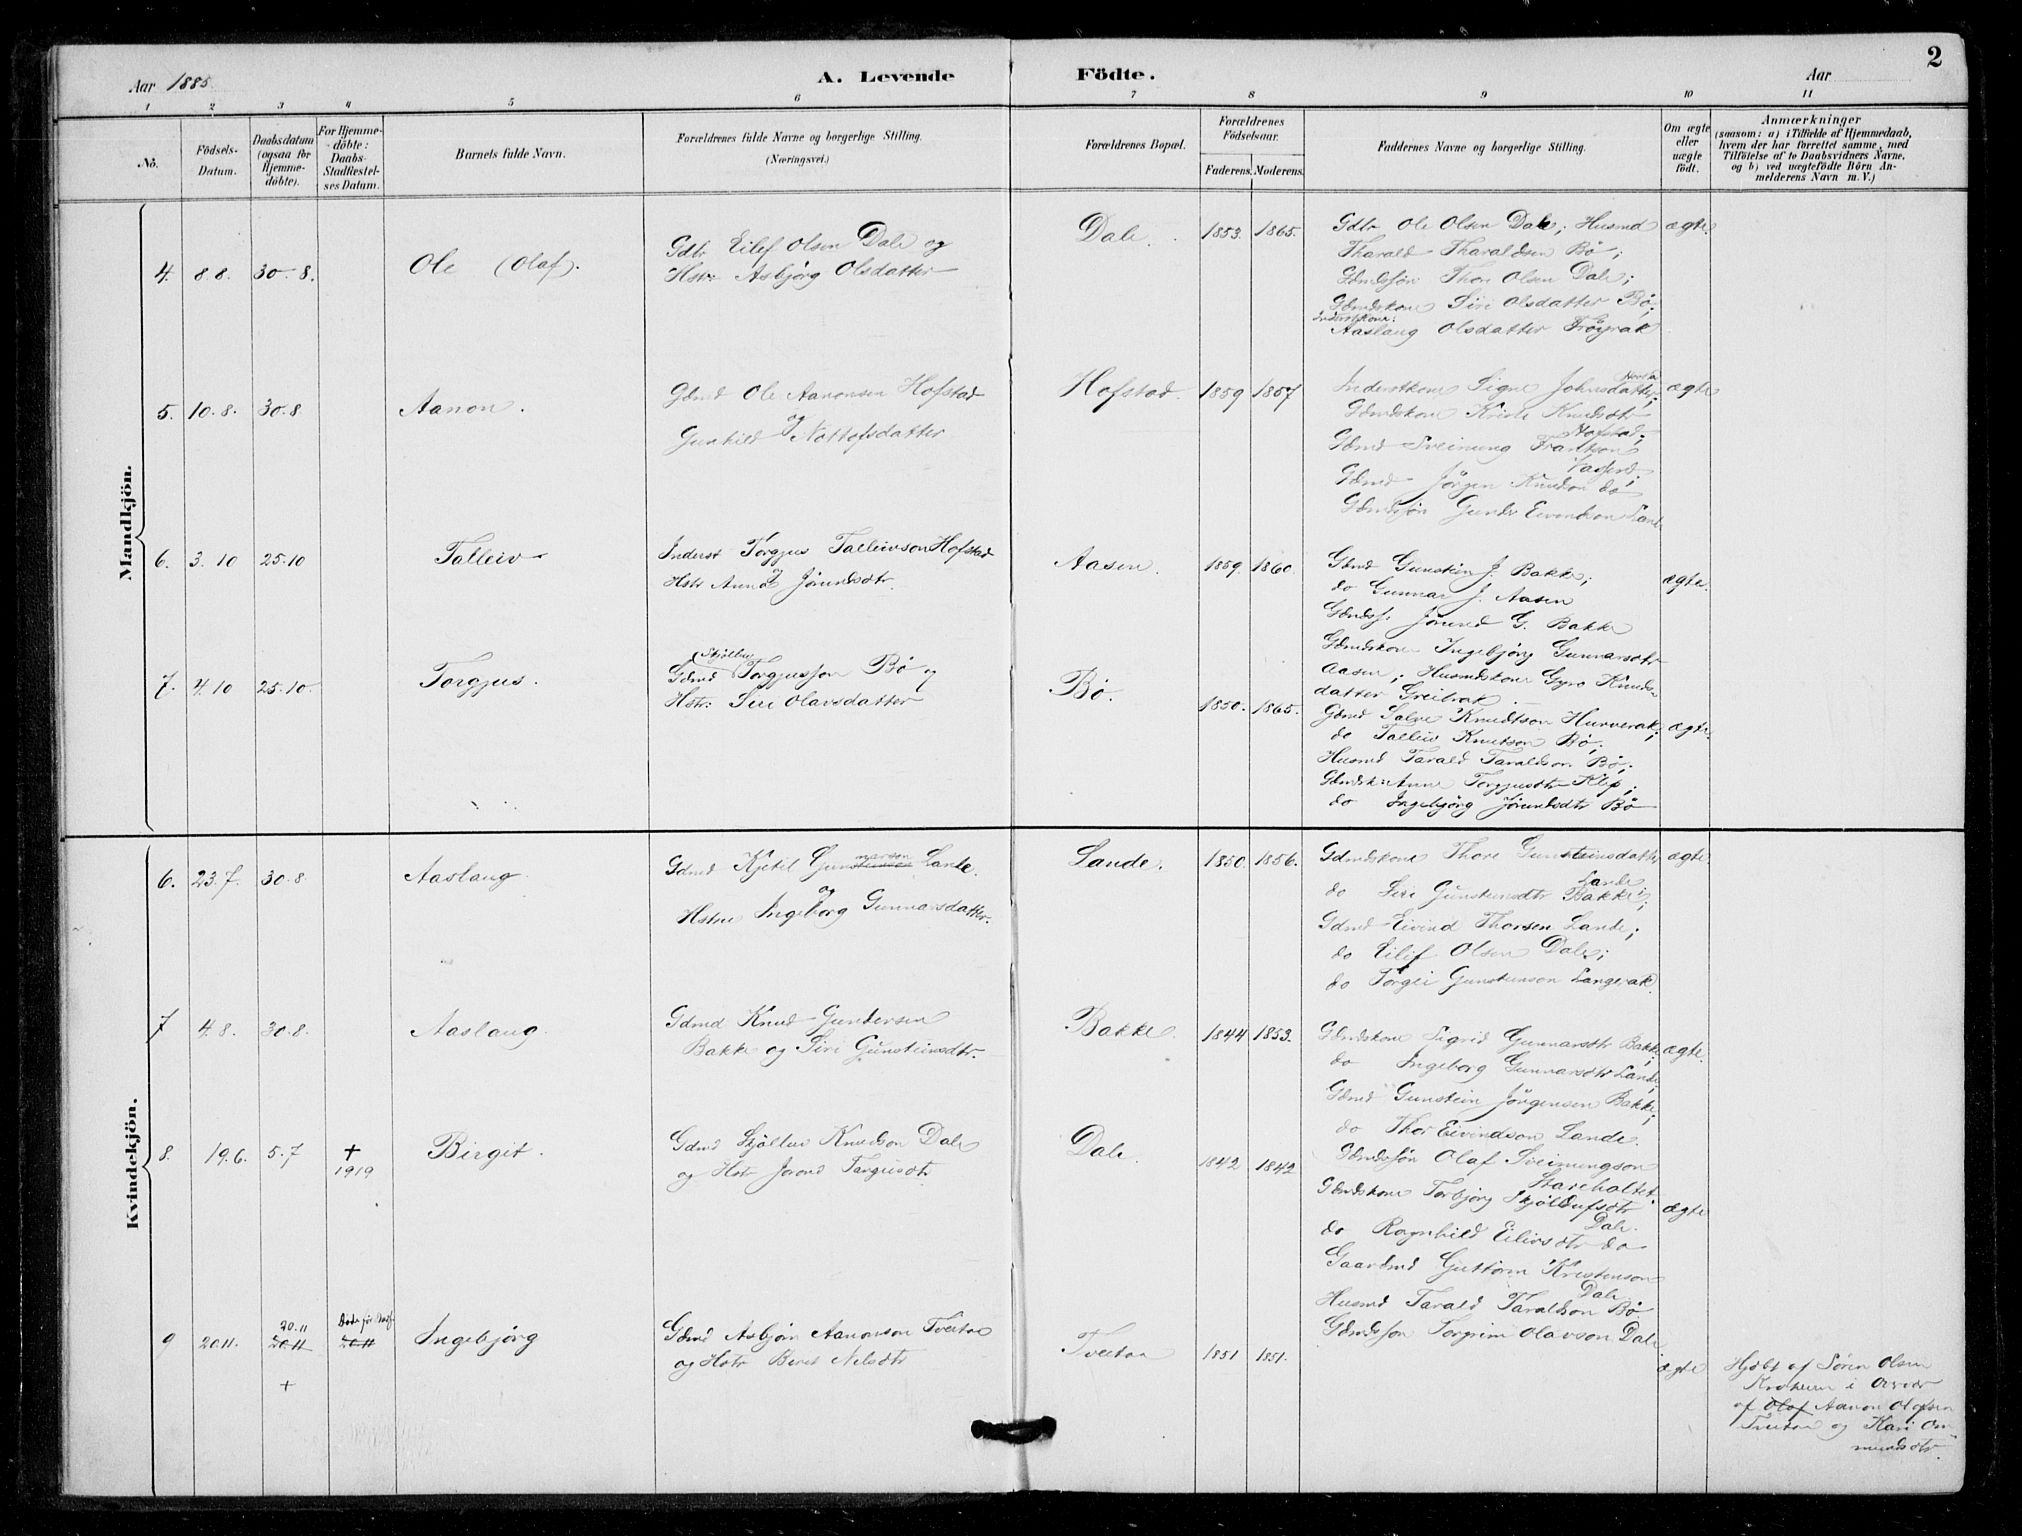 2
Aar 1885.
A. Levende Födte.
Aar
1 2 3 4 5 6 7 8 9 10 11
No.
Födsels-Datum.
Daabsdatum (ogsaa for Hjemmedöbte).
For Hjemmedöbte: Daabs-Stadfæstelses Datum.
Barnets fulde Navn.
Forældrenes fulde Navne og borgerlige Stilling.
(Næringsvei.)
Forældrenes Bopæl.
Forældrenes Födselsaar.
Faderens. Moderens.
Faddernes Navne og borgerlige Stilling.
Om ægte eller uægte födt.
Anmærkninger
(saasom: a) i Tilfælde af Hjemmedaab, hvem der har forrettet samme, med Tilföielse af to Daabsvidners Navne, og b) ved uægtefödte Börn Anmelderens Navn m. V.)
Mandkjön.
4. 8.8. 30-8. Ole (Olaf).
Gdbr Eilef Olsen Dale og
Hstr: Asbjørg Olsdatter
Dale. 1853. 1865.
Gdbr Ole Olsen Dale; Husmd
Tharald Tharaldsen Bø;
Gdmdssøn Thore Olsen Dale;
Gdmdskone Siri Olsdatter Bø;
Inderstkone:
Aaslaug Olsdatter Frøyrak
ægte.
5. 10.8. 30.8 Aanon.
Gdmd Ole Aanonsen Hofstad
og
Gunhild Nottofsdatter
Hofstad. 1859 1857
Inderstkone Signe Johnsdatter
Gdmdskone Kristi Knudsdtr
Hofstad;
Gdmd Sveinung
Gdmd Jörgen Knudson do
Gdmdssøn Gunder Eivendson Lande
ægte
6. 3.10 25.10 Talleiv
Inderst Torgjus Talleivson Hofstad
og
Hstr Anne Jórundsdtr.
Aasen. 1859. 1860.
Gdmd Gunstein J. Bakke;
do Gunnar J. Aasen
Gdmdss. Jörund G. Bakke
Gdmdskone Ingebjörg Gunnarsdtr
Aasen; Husmdskone Gyro Knuds-
datter Greibrak
ægte.
7. 4.10 25.10. Torgjus.
Skjöllw
Gdmd Torgjusson Bö og
Hstr: Siri Olavsdatter
Bö. 1850. 1865.
Gdmd Salve Knudtson Hurverak;
do Talleiv Knutson Bö;
Husmd Tarald Taraldson Bö;
Gdmdsk: Anne Torgjusdtr Klep;
do Ingebjörg Jörundsdtr Bö
ægte.
Kvindekjön.
6. 23.7. 30.8 Aaslaug.
narsen
Gdmd Kjetil Gunsteinsen Lande.
og
Hstru Ingeborg Gunnarsdatter.
Lande. 1850. 1856.
Gdmdskone Thore Gunsteinsdatter
Lande
do Siri Gunsteinsdtr Bakke;
Gdmd Eivind Thorsen Lande;
do Eilif Olsen Dale;
do Torgei Gunsteinson Langerak.
ægte
7 4.8. 30.8. Aaslaug.
Gdmd Knud Gundersen
Bakke og Siri Gunsteinsdtr.
Bakke. 1844 1853.
Gdmdskone Sigrid Gunnarsdtr Bakke;
do Ingeborg Gunnarsdtr Lande;
Gdmd Gunstein Jörgensen Bakke;
do Thor Eivindson Lande.
Gdmdssön Olaf Sveinungson
Stareholtet.
ægte.
8. 19.6. 5.7 + 1919 Birgit.
Gdmd Skjöllw Knudson Dale
og Hstr Jorond Targusdtr
Dale. 1842 1842
Gdmdskone Torbjörg Skjöllufsdtr
Dale.
do Ragnhild Eilivsdtr do
Gaardmd Guttorm Kristenson
Dale
Husmd Tarald Taraldson Bö
Gdmdssøn Torgrim Olavson Dale
ægte
9 20.11. 20.11 20.11 20.11 Döde för Stadf. Ingebjörg
+
Gdmd Asbjörn Aanonson Tveitaa
og Hstr Beret Nilsdtr
Tveitaa 1851 1851.
ægte
Hjdbt af Sören Olsen
i
af Olaf Aanon Olafsen
Tveitaa og Kari Om-
mundsdtr.